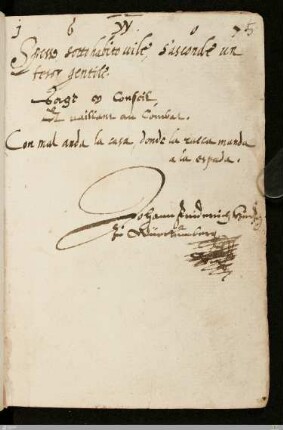 1 6 W 0 5
Spesso sotto habito vile, s'asconde un
cor gentile.
Sage en Conseil,
Et vaillant au Combat.
Con mal anda la casa, donde la rueca manda
a la espada.
Johann Friderich
zu Württemberg